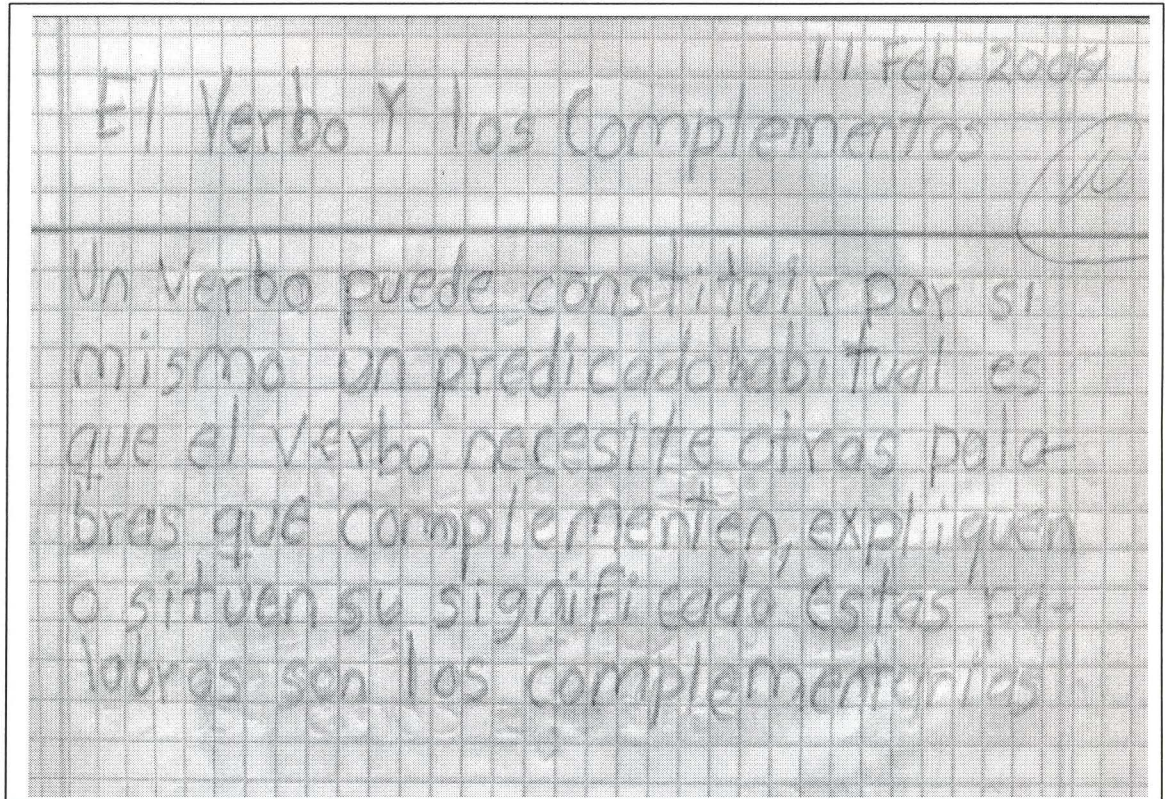 11 Feb. 2004
El Verbo Y los Complementos
Un Verbo puede constituir por si
mismo un predicado habitual es
que el Verbo necesite otras pala-
bras que complementen, expliquen
o situen su significado Estas pa-
labras son los complementarias